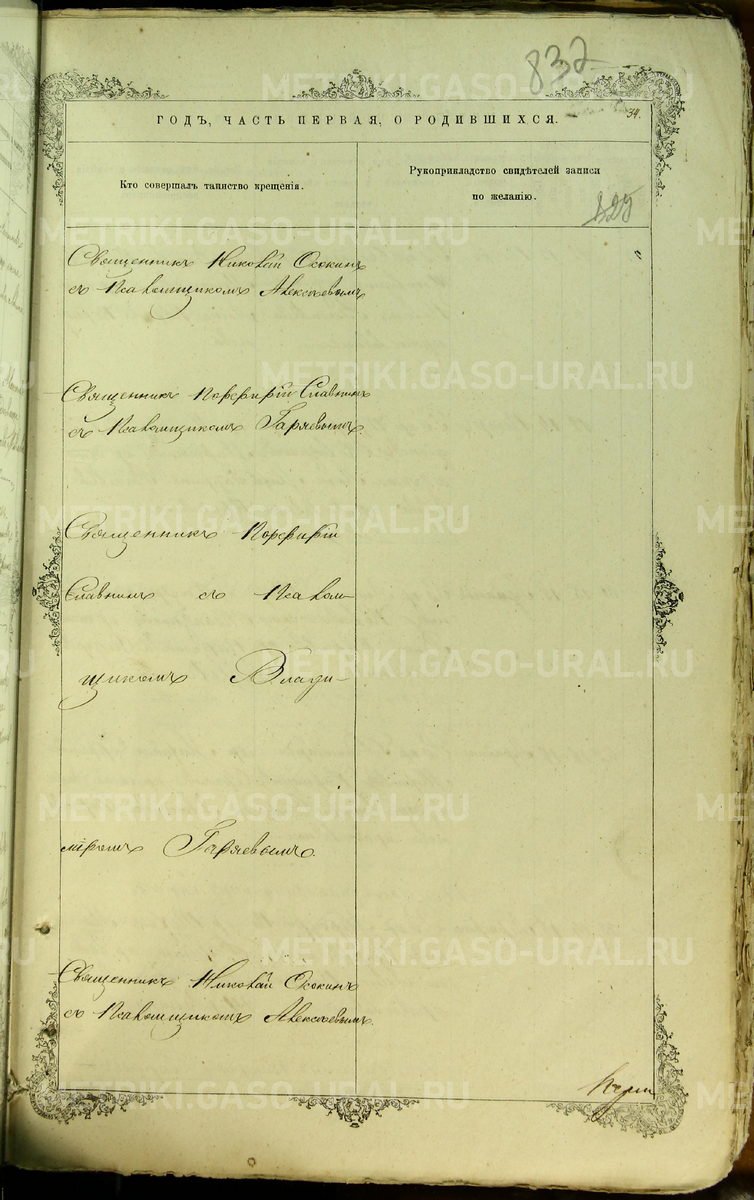 832
34.
ГОДЪ, ЧАСТЬ ПЕРВАЯ, О РОДИВШИХСЯ.
Кто совершалъ таинство крещенія.
Рукоприкладство свидѣтелей записи
по желанію.
825
Священникъ Николай Ососкинъ
съ Псаломщикомъ Алексѣевымъ
Священникъ Порфирій Славнинъ
съ Псаломщикомъ Гаряевымъ.
Священникъ Порфирій
Славнинъ съ Псалом-
щикомъ Влади-
міромъ Гаряевымъ.
Священникъ Николай Ососкинъ
съ Псаломщикомъ Алексѣевымъ.
METRIKI.GASO-URAL.RU